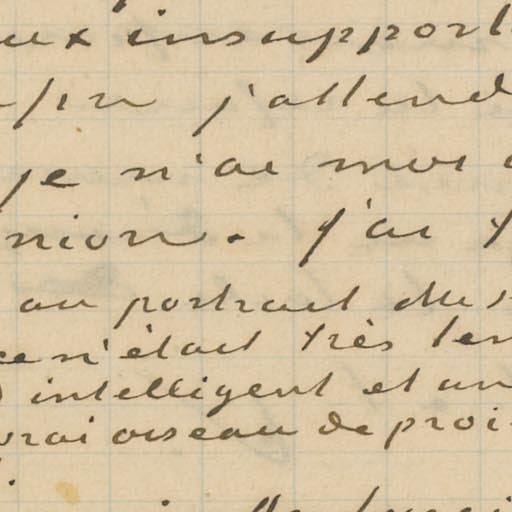 eux insupport
fin j'attend
je n'ai moi
nion. j'ai
au portrait
ce n'était très
intelligent et un
vrai oiseau de proi